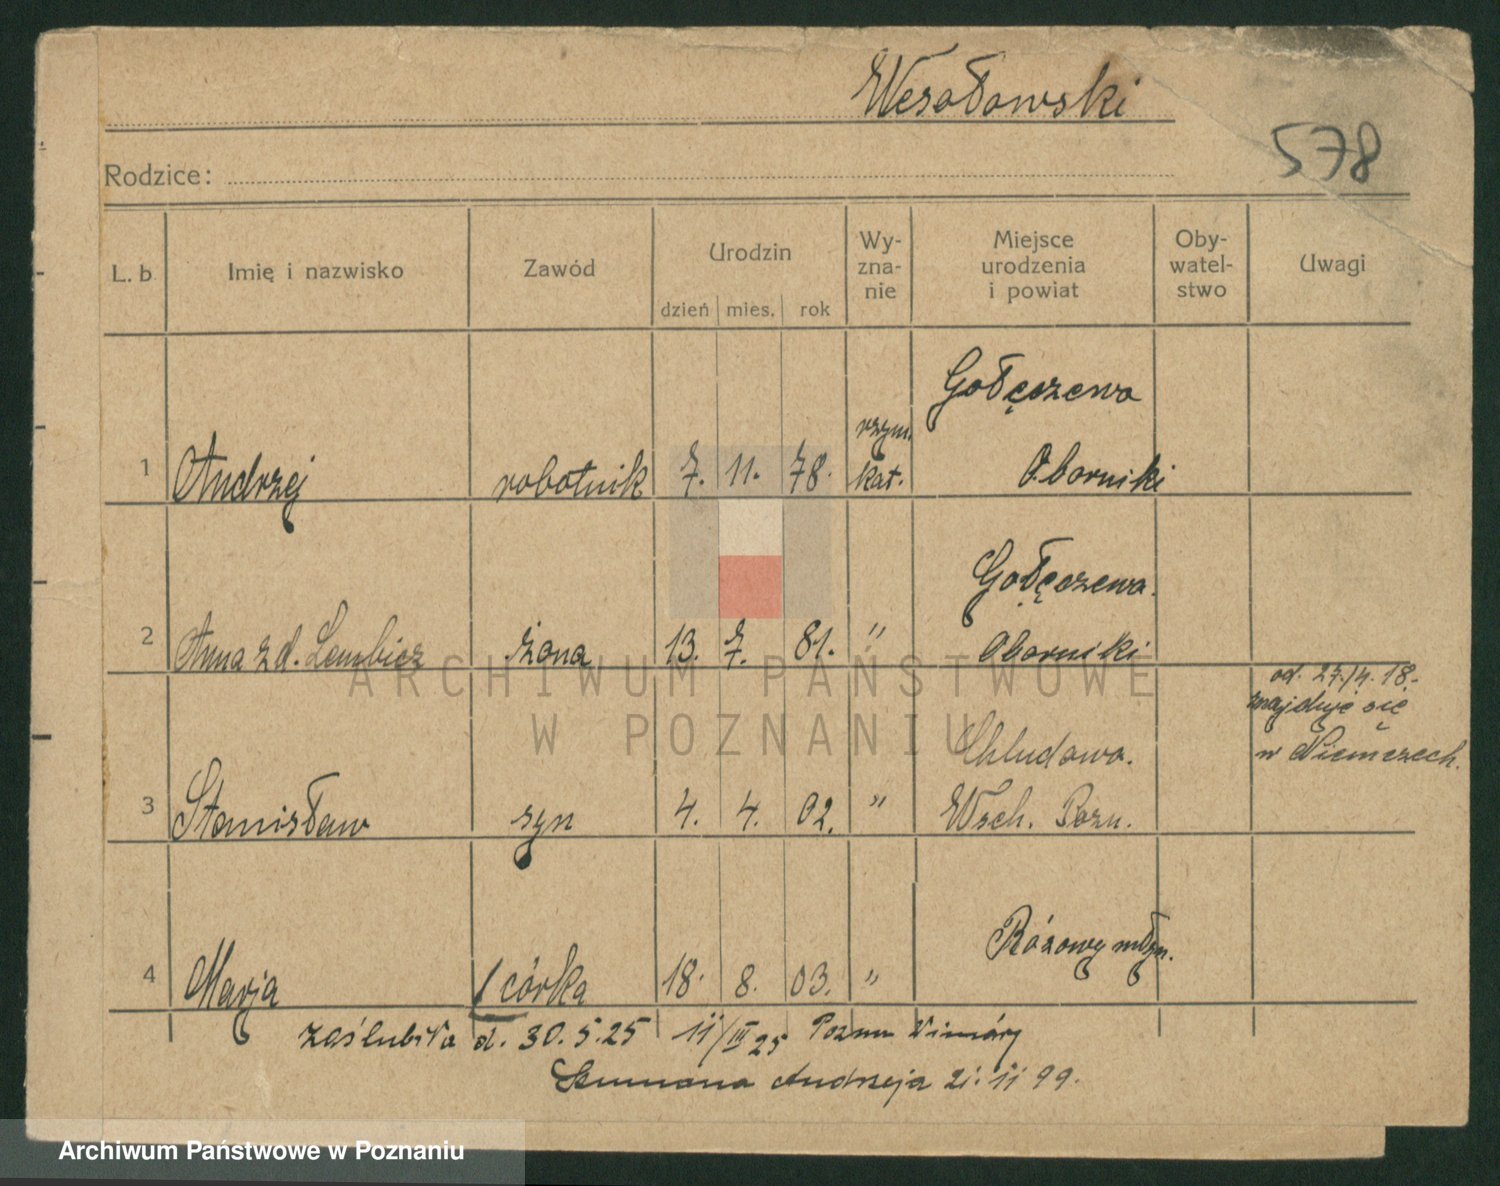 Wesołowski
578
Rodzice:
L. b
Imię i nazwisko
Zawód
Urodzin
dzień mies. rok
Wy-
zna-
nie
Miejsce
urodzenia
i powiat
Oby-
watel-
stwo
Uwagi
1 Andrzej robotnik 7. 11. 78. rzym. kat. Gołęczewo Oborniki
2 Anna z d. Lembicz żona 13. 7. 81. " Gołęczewo. Oborniki
3 Stanisław syn 4. 4. 02. " Chludowo. Wsch. Pozn.
od. 27./4. 18.
znajduje się
w Niemczech.
4 Marja córka 18. 8. 03. " Różowy młyn.
zaślubiła d. 30.5.25 11/III 25 Pozn. Winiary
Andrzeja 21. 11 99.
ARCHIWUM PAŃSTWOWE
W POZNANIU
Archiwum Państwowe w Poznaniu